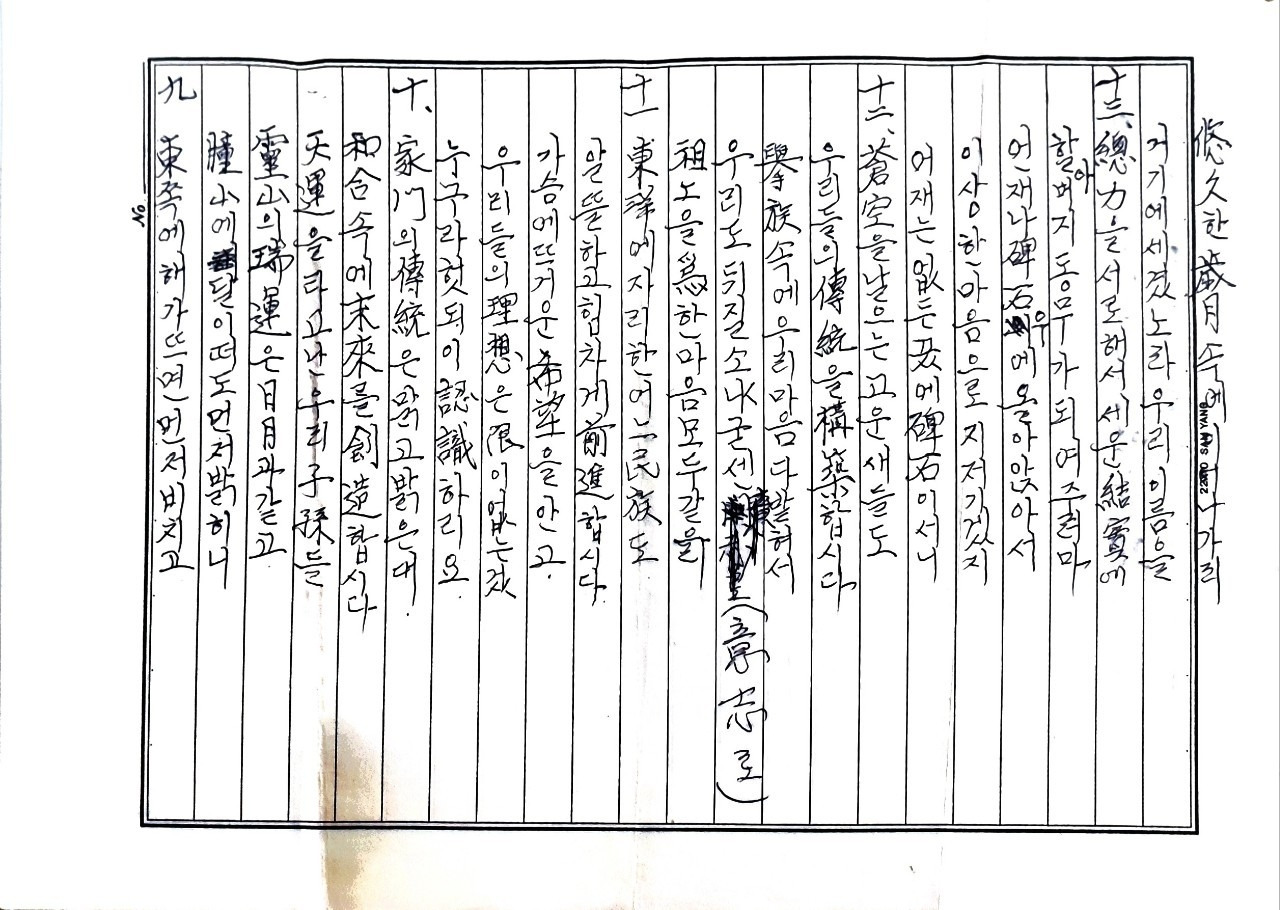 九 東쪽에해가뜨면먼저비치고
瞳山에달이떠도먼저밝히니
靈山의瑞運은日月과같고
天運을타고난우리子孫들
和合속에未來를創造합시다
十、家門의傳統은맑고밝은대.
누구라헛되이認識하리오
우리들의理想은限이없는것
가슴에뜨거운希望을안고.
알뜰하고힘차게前進합시다.
十一 東洋에자리한어느民族도
祖上을爲한마음모두같을
우리도뒤질소냐굳센(意志로)
擧族속에우리마음다발혀서
우리들의傳統을構築합시다
十二、蒼空을날으는고운새들도
어재는없든곳에碑石이서니
이상한마음으로지저기겠지
언재나碑石우에올아앉아서
할아버지동무가되여주렴마
十三、總力을서로해서세운結實에
거기에세겼노라우리이름을
悠久한歲月속에나가리
No